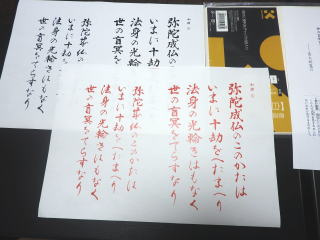 弥陀成仏のこのかたは
いまに十劫をへたまへり
法身の光輪きはもなく
世の盲冥をてらすなり
弥陀成仏のこのかたは
いまに十劫をへたまへり
法身の光輪きはもなく
世の盲冥をてらすなり
弥陀成仏のこのかたは
いまに十劫を
法身の光輪き
世の盲冥を
弥陀成仏の
いまに十劫を
法身の光輪きはもなく
世の盲冥をてらすなり